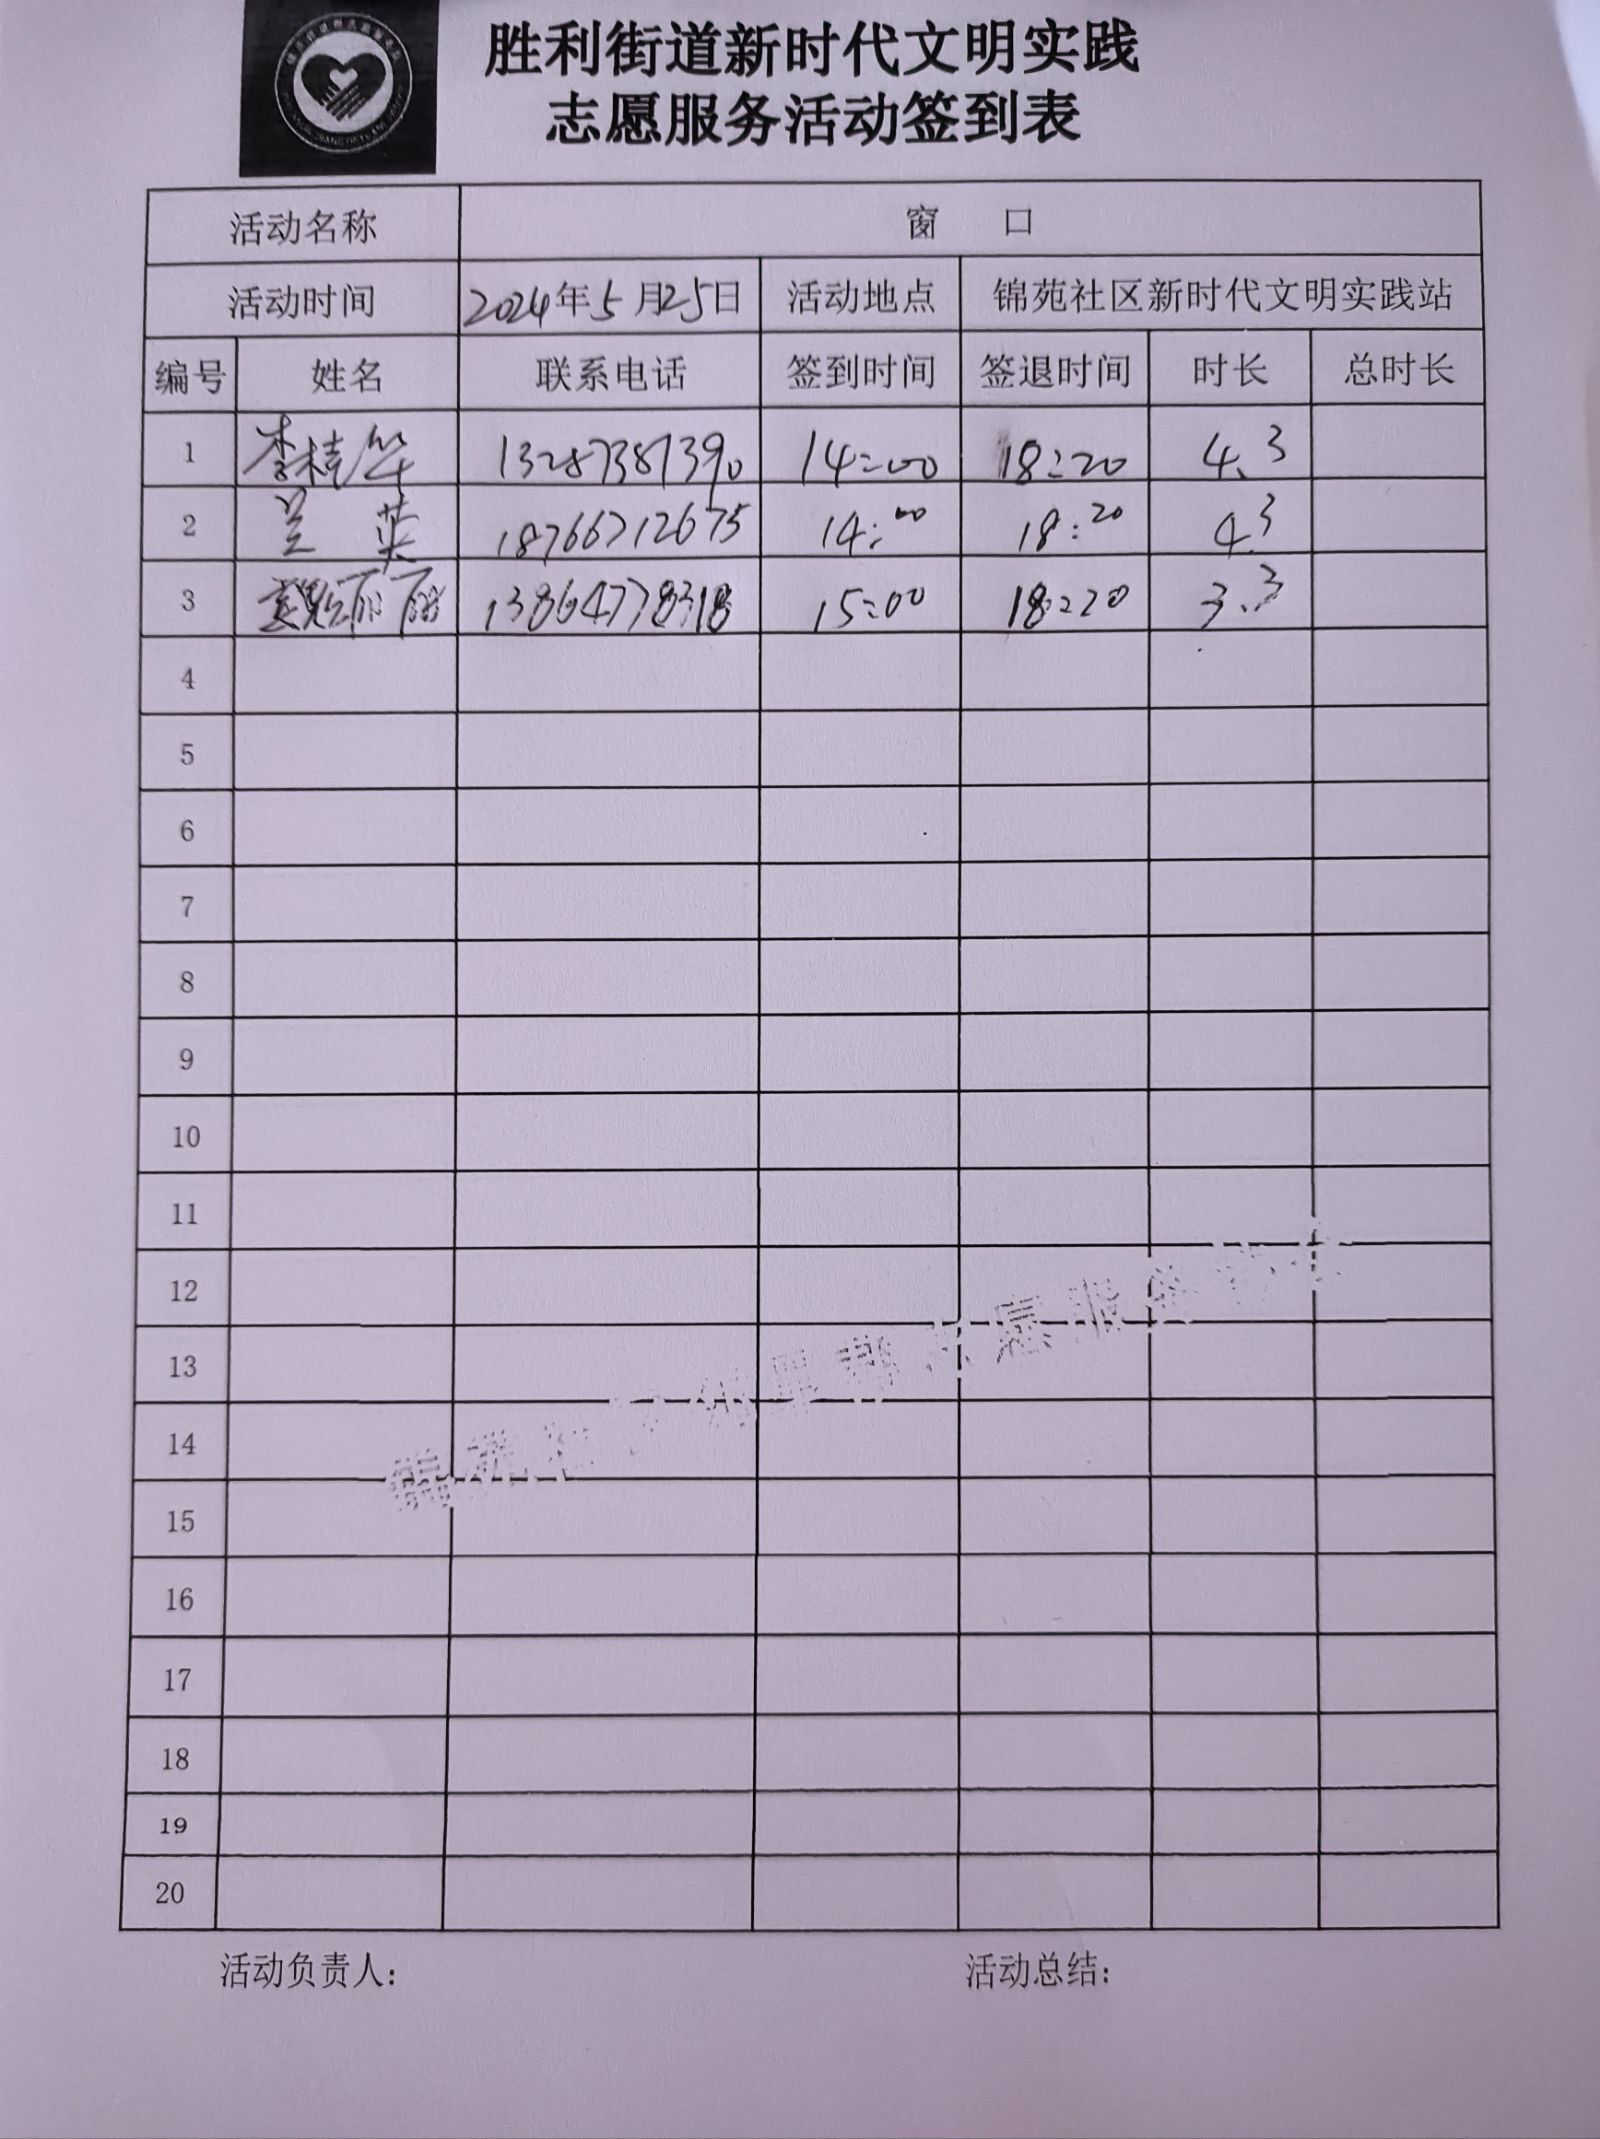 胜利街道新时代文明实践
志愿服务活动签到表
活动名称 窗 口
活动时间 2024年5月25日 活动地点 锦苑社区新时代文明实践站
编号 姓名 联系电话 签到时间 签退时间 时长 总时长
1 李桂华 13287381390 14:00 18:20 4.3
2 兰 英 18766712675 14:00 18:20 4.3
3 丽丽 13864778318 15:00 18:20 3.3
4
5
6
7
8
9
10
11
12
13
14
15
16
17
18
19
20
锦苑社区邻里帮志愿服务
活动负责人: 活动总结: